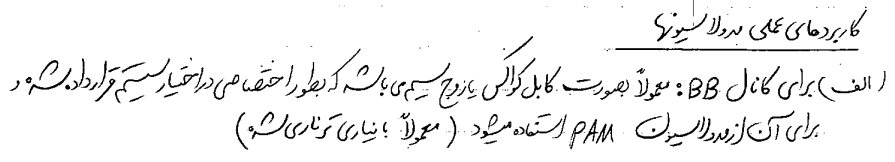 کاربردهای عملی مدولاسیونها
الف) برای کانال BB: معمولاً بصورت کابل کواکس یا زوج سیم می باشد که بطور اختصاصی در اختیار سیستم قرار داده شده و
برای آن از مدولاسیون PAM استفاده میشود (معمولاً باینری ترناری)